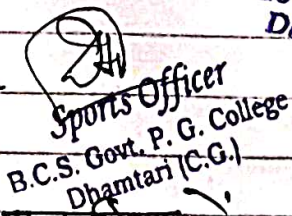 D
Sports Officer
B.C.S. Govt. P. G. College
Dhamtari (C.G.)